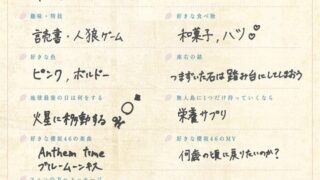 趣味・特技
読書・人狼ゲーム
好きな食べ物
和菓子, ハツ
好きな色
ピンク, ボルドー
座右の銘
つまずいた石は踏み台にしてしまおう
地球最後の日は何をする
火星に移動する
無人島に1つだけ持っていくなら
栄養サプリ
好きな櫻坂46の楽曲
Anthem time
ブルームーンキス
好きな櫻坂46のMV
何歳の頃に戻りたいのか?